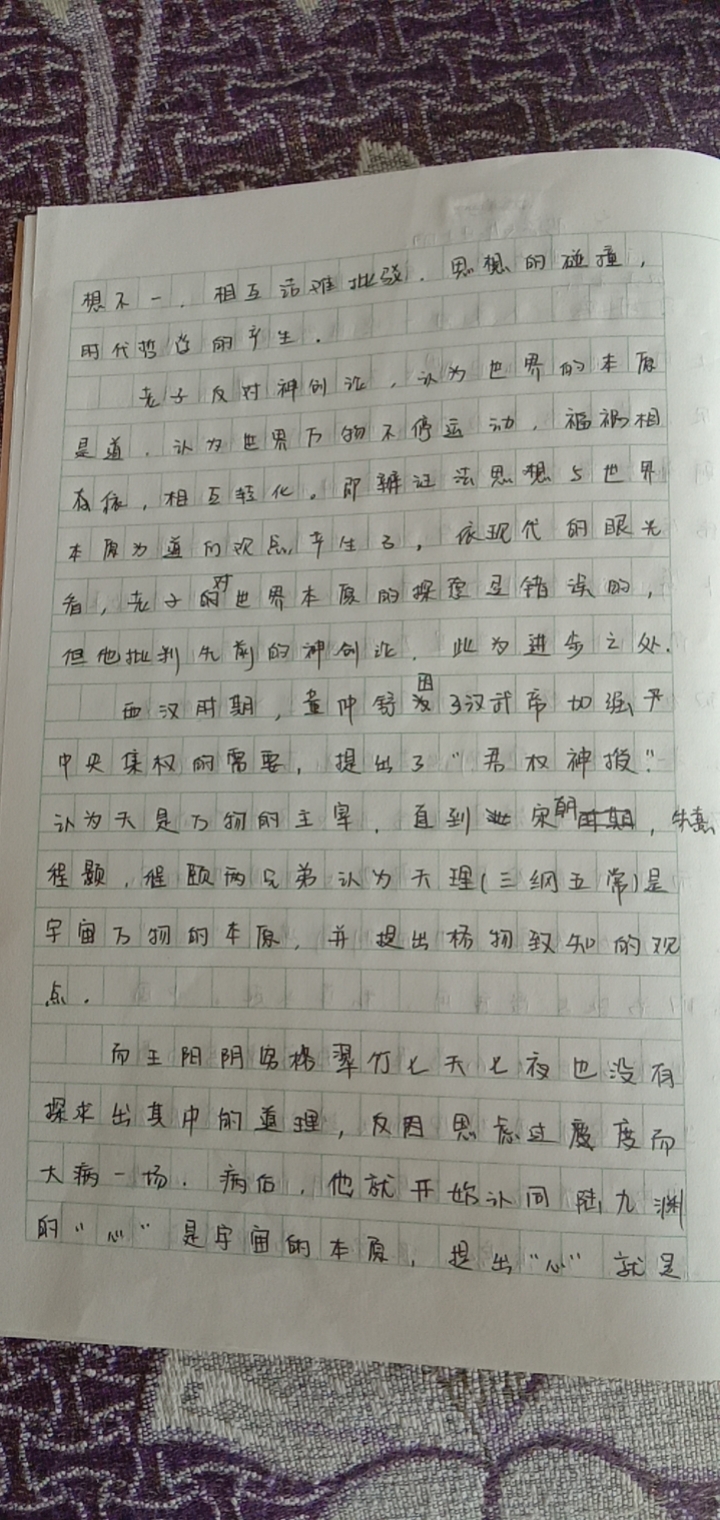 想不一．相互诘难批驳．思想的碰撞，
时代哲学的产生．
老子反对神创论，认为世界的本原
是道．认为世界万物不停运动，福祸相
有依，相互转化。即辨证法思想与世界
本原为道的观点产生了，依现代的眼光
看，老子对世界本原的探索是错误的，
但他批判先前的神创论．此为进步之处．
西汉时期，董仲舒因了汉武帝加强
中央集权的需要，提出了“君权神授”．
认为天是万物的主宰．直到宋朝，朱熹
程颢．程颐两兄弟认为天理(三纲五常)是
宇宙万物的本原．并提出格物致知的观
点．
而王阳阴格翠竹七天七夜也没有
探求出其中的道理，反因思虑过度而
大病一场．病后．他就开始认同陆九渊
的“心”是宇宙的本原．提出“心”就是